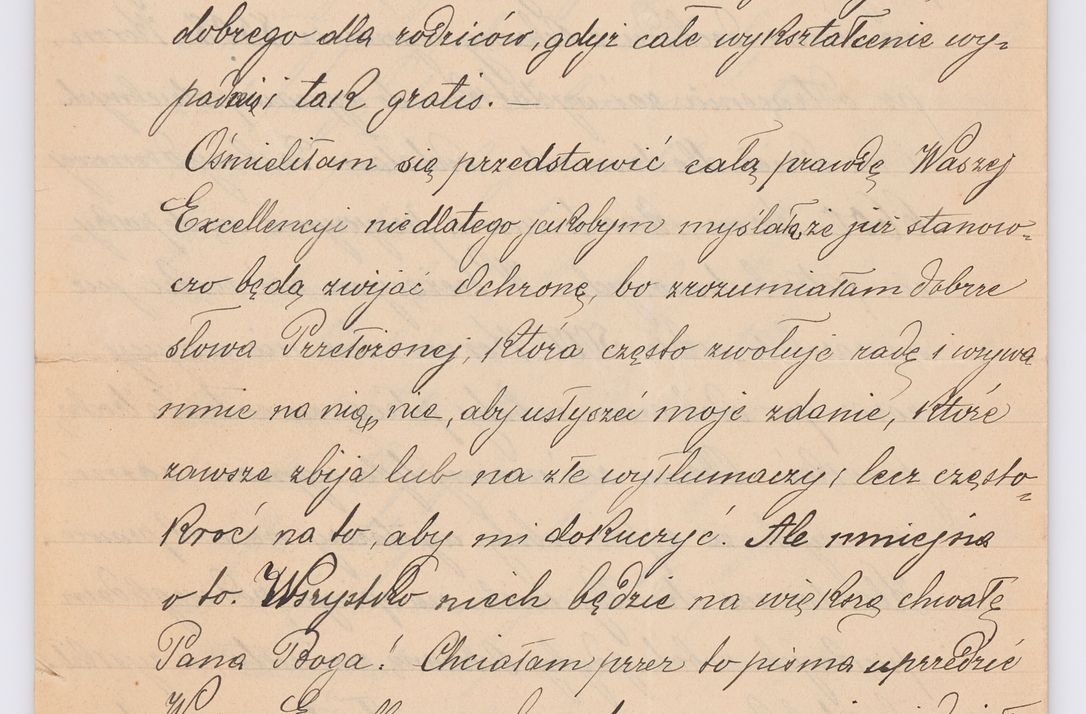 dobrego dla rodziców, gdyż całe wykształcenie wy=
i tak gratis. —
Ośmieliłam się przedstawić całą prawdę Waszej
Excellencyi nie dlatego jakobym myślała, że już stanow=
czo będą zwijać Ochronę, bo zrozumiałam dobrze
słowa Przełożonej, która często zwołuje radę i wzywa
mnie na nią, nie, aby usłyszeć moje zdanie, które
zawsze zbija lub na złe wytłumaczy, lecz często=
kroć na to, aby mi dokuczyć. Ale mniejsza
o to. Wszystko niech będzie na większą chwałę
Pana Boga! Chciałam przez to pismo uprzedzić